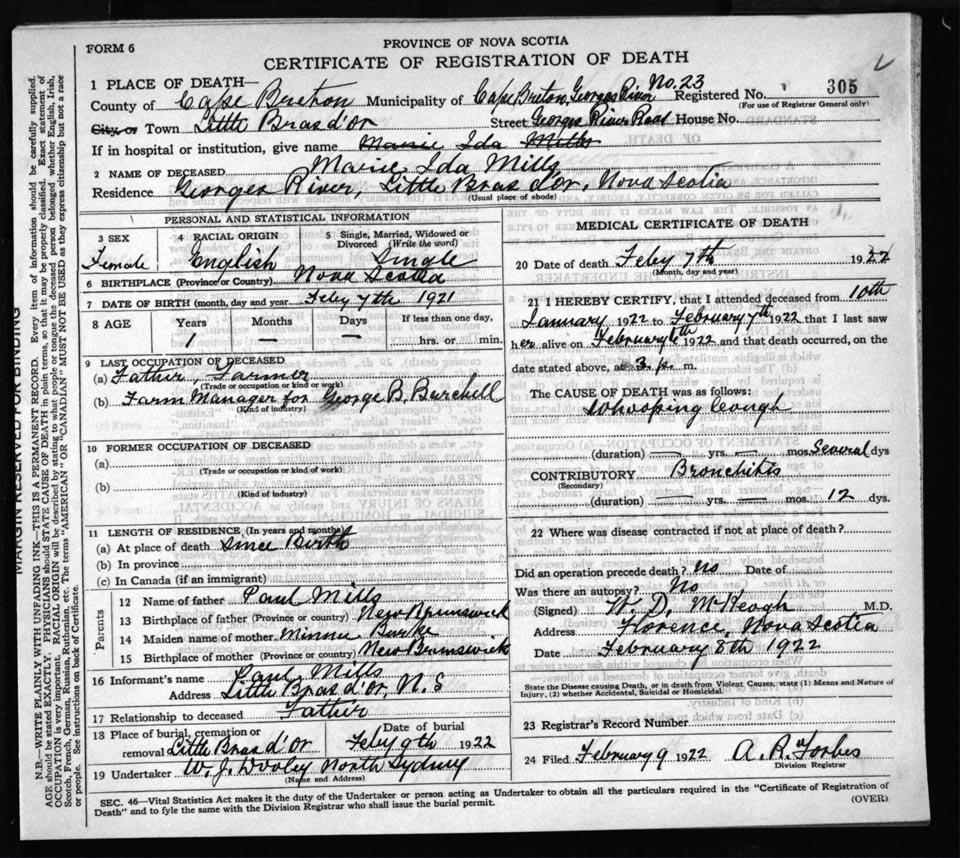 FORM 6
PROVINCE OF NOVA SCOTIA
CERTIFICATE OF REGISTRATION OF DEATH
1 PLACE OF DEATH—
County of Cape Breton Municipality of Cape Breton, Georges River No. 23 Registered No. 305
(For use of Registrar General only)
City or Town Little Bras d'or Street Georges River Road House No.
If in hospital or institution, give name Marie Ida Mills
2 NAME OF DECEASED Marie Ida Mills
Residence Georges River, Little Bras d'Or, Nova Scotia
(Usual place of abode)
PERSONAL AND STATISTICAL INFORMATION
3 SEX Female
4 RACIAL ORIGIN English
5 Single, Married, Widowed or Divorced (Write the word) Single
6 BIRTHPLACE (Province or Country) Nova Scotia
7 DATE OF BIRTH (month, day and year) Feby 7th 1921
8 AGE Years Months Days If less than one day,
1 — — hrs. or min.
9 LAST OCCUPATION OF DECEASED
(a) Father, Farmer
(Trade or occupation or kind or work)
(b) Farm Manager for George B. Burchell
(Kind of industry)
10 FORMER OCCUPATION OF DECEASED
(a)
(Trade or occupation or kind of work)
(b)
(Kind of industry)
11 LENGTH OF RESIDENCE (In years and months)
(a) At place of death Since Birth
(b) In province
(c) In Canada (if an immigrant)
Parents
12 Name of father Paul Mills
13 Birthplace of father (Province or country) New Brunswick
14 Maiden name of mother Minnie Burke
15 Birthplace of mother (Province or country) New Brunswick
16 Informant's name Paul Mills
Address Little Bras d'or, N.S
17 Relationship to deceased Father
18 Place of burial, cremation or removal Little Bras d'Or
Date of burial Feby 9th 1922
19 Undertaker W. J. Dooley North Sydney
(Name and Address)
MEDICAL CERTIFICATE OF DEATH
20 Date of death Feby 7th 1922
(Month, day and year)
21 I HEREBY CERTIFY, that I attended deceased from 10th
January 1922 to February 7th 1922, that I last saw
her alive on February 6th 1922 and that death occurred, on the
date stated above, at 3. p. m.
The CAUSE OF DEATH was as follows:
Whooping Cough
(duration) — yrs. — mos. Several dys
CONTRIBUTORY Bronchitis
(Secondary)
(duration) — yrs. mos. 12 dys.
22 Where was disease contracted if not at place of death?
Did an operation precede death? No Date of
Was there an autopsy? No
(Signed) W. D. McKeogh M.D.
Address Florence, Nova Scotia
Date February 8th 1922
State the Disease causing Death, or in death from Violent Causes, state (1) Means and Nature of
Injury, (2) whether Accidental, Suicidal or Homicidal.
23 Registrar's Record Number
24 Filed February 9 1922 A. R. Forbes
Division Registrar
SEC. 46—Vital Statistics Act makes it the duty of the Undertaker or person acting as Undertaker to obtain all the particulars required in the "Certificate of Registration of
Death" and to fyle the same with the Division Registrar who shall issue the burial permit.
(OVER)
MARGIN RESERVED FOR BINDING
N.B.—WRITE PLAINLY WITH UNFADING INK—THIS IS A PERMANENT RECORD. Every item of information should be carefully supplied.
AGE should be stated EXACTLY. PHYSICIANS should STATE CAUSE OF DEATH in plain terms, so that it may be properly classified. Exact statement of
OCCUPATION is very important. RACIAL ORIGIN will be described by stating to what people or tongue the deceased person belonged whether English, Irish,
Scotch, French, German, Russian, Ruthenian, etc. The terms "AMERICAN" OR "CANADIAN" MUST NOT BE USED as they express citizenship but not a race
or people. See instructions on back of Certificate.